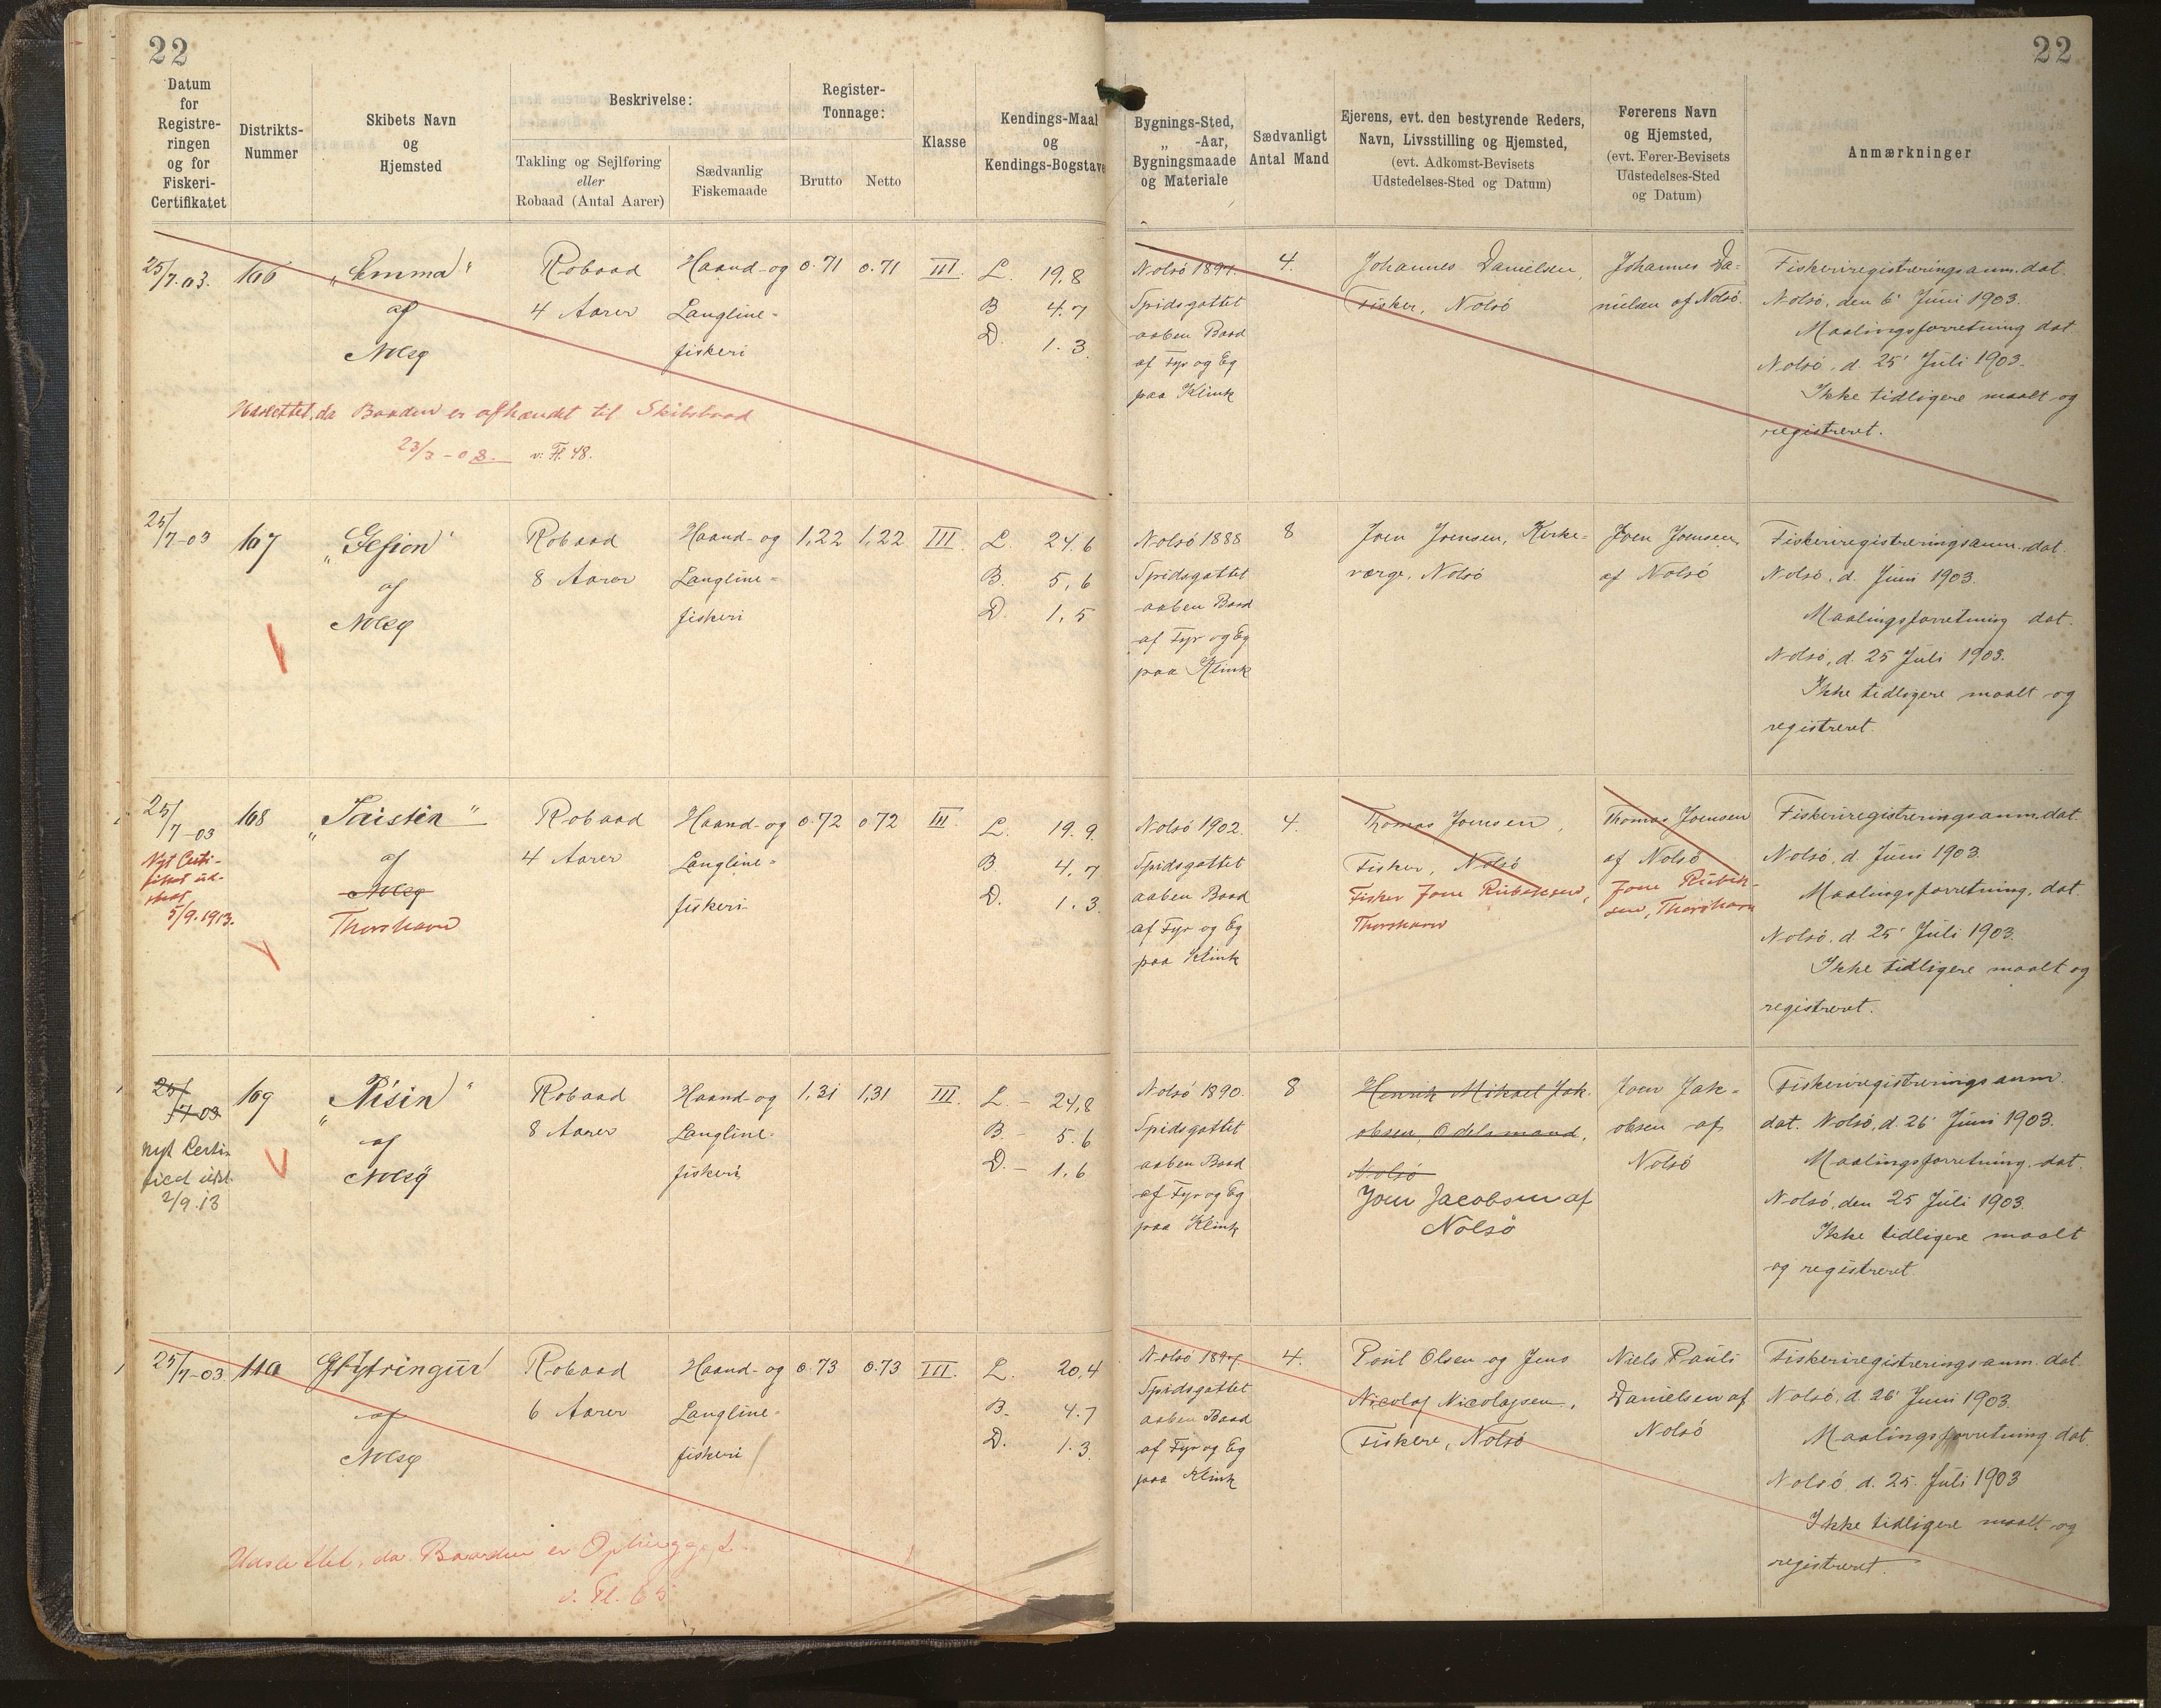 22
22
Datum for Registreringen og for Fiskeri-Certifikatet
Distrikts-Nummer
Skibets Navn og Hjemsted
Beskrivelse:
Takling og Sejlføring eller Robaad (Antal Aarer)
Sædvanlig Fiskemaade
Register-Tonnage:
Brutto
Netto
Klasse
Kendings-Maal og Kendings-Bogstave
Bygnings-Sted, „ -Aar, Bygningsmaade og Materiale
Sædvanligt Antal Mand
Ejerens, evt. den bestyrende Reders, Navn, Livsstilling og Hjemsted, (evt. Adkomst-Bevisets Udstedelses-Sted og Datum)
Førerens Navn og Hjemsted, (evt. Fører-Bevisets Udstedelses-Sted og Datum)
Anmærkninger
25/7.03.
106
„Emma"
af
Nolsø
Robaad
4 Aarer
Haand- og
Langline-
fiskeri
0.71
0.71
III.
L. 19,8
B 4.7
D. 1.3
Nolsö 1897.
Spidsgattet
aaben Baad
af Fyr og Eg
paa Klink
4.
Johannes Danielsen,
Fisker, Nolsö
Johannes Da-
nielsen af Nolsö.
Fiskeriregistreringsanm. dat.
Nolsö, den 6' Juni 1903.
Maalingsforretning dat.
Nolsö, d. 25' Juli 1903.
Ikke tidligere maalt og
registreret.
Udslettet, da Baaden er afhændet til Skibsbaad
23/3-08. v. Fl. 48.
25/7-03
107
„Gefion"
af
Nolsø
Robaad
8 Aarer
Haand- og
Langline-
fiskeri
1,22
1,22
III.
L. 24.6
B. 5,6
D. 1,5
Nolsö 1888
Spidsgattet
aaben Baad
af Fyr og Eg
paa Klink
8
Joen Joensen, Kirke-
værge, Nolsö
Joen Joensen
af Nolsö
Fiskeriregistreringsanm. dat.
Nolsö, d. Juni 1903.
Maalingsforretning dat.
Nolsö, d. 25 Juli 1903.
Ikke tidligere maalt og
registreret.
25/7-03
Nyt Certi-
fikat ud-
5/9.1913.
108
„Taistin"
af
Nolsø
Thorshavn
Robaad
4 Aarer
Haand- og
Langline-
fiskeri
0.72
0 72
III.
L. 19.9
B. 4,7
D. 1.3
Nolsö 1902.
Spidsgattet
aaben Baad
af Fyr og Eg
paa Klink
4.
Thomas Joensen,
Fisker, Nolsö
Fisker Jone Rubeksen,
Thorshavn
Thomas Joensen
af Nolsö
Jone Rubek-
sen, Thorshavn
Fiskeriregistreringsanm. dat.
Nolsö, d. Juni 1903.
Maalingsforretning, dat.
Nolsö, d. 25' Juli 1903.
Ikke tidligere maalt og
registreret.
25/7-03
Nyt Certi-
ficat udst.
2/9.13
109
„Pisin"
af
Nolsö
Robaad
8 Aarer
Haand- og
Langline-
fiskeri
1,31
1,31
III.
L. - 24,8
B. - 5.6
D. - 1.6
Nolsö 1890.
Spidsgattet
aaben Baad
af Fyr og Eg
paa Klink
8
Henrik Mikael Jak-
obsen, Odelsmand,
Nolsö
Joen Jacobsen af
Nolsö
Joen Jak-
obsen af
Nolsö
Fiskeriregistreringsanm.
dat. Nolsö, d. 26' Juni 1903.
Maalingsforretning, dat.
Nolsö, den 25 Juli 1903.
Ikke tidligere maalt
og registreret.
25/7-03.
110
af
Nolsø
Robaad
6 Aarer
Haand- og
Langline-
fiskeri
0.73
0.73
III.
L. 20,4
B. 4.7
D. 1.3
Nolsö 1897.
Spidsgattet
aaben Baad
af Fyr og Eg
paa Klink
4.
Poul Olsen og Jens
Nicolaj Nicolajsen,
Fiskere, Nolsö
Niels Pauli
Danielsen af
Nolsö
Fiskeriregistreringsanm. dat.
Nolsö, d. 26' Juni 1903.
Maalingsforretning dat.
Nolsö, d. 25. Juli 1903
Ikke tidligere maalt og
registreret.
Udslettet, da Baaden er Ophugget.
v. Fl. 65